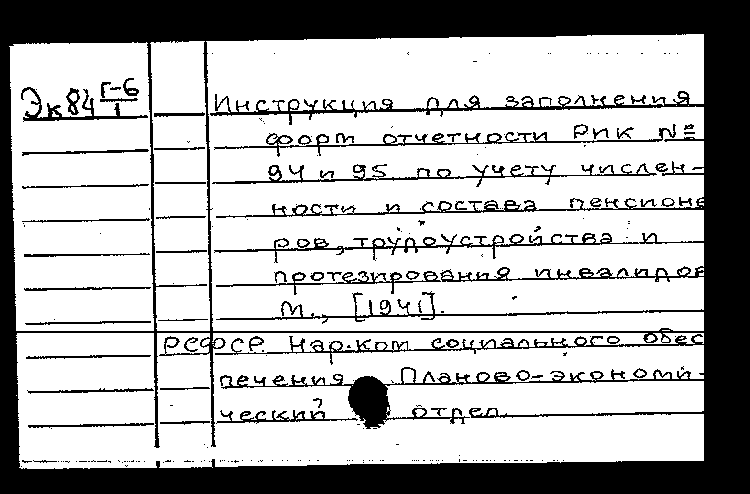 Эк84 Г-6/1
Инструкция для заполнения
форм отчетности РИК №№
94 и 95 по учету числен-
ности и состава пенсионе
ров, трудоустройства и
протезирования инвалидов
М., [1941].
РСФСР. Нар.ком социального обес
печения. Планово-экономи-
ческий отдел.